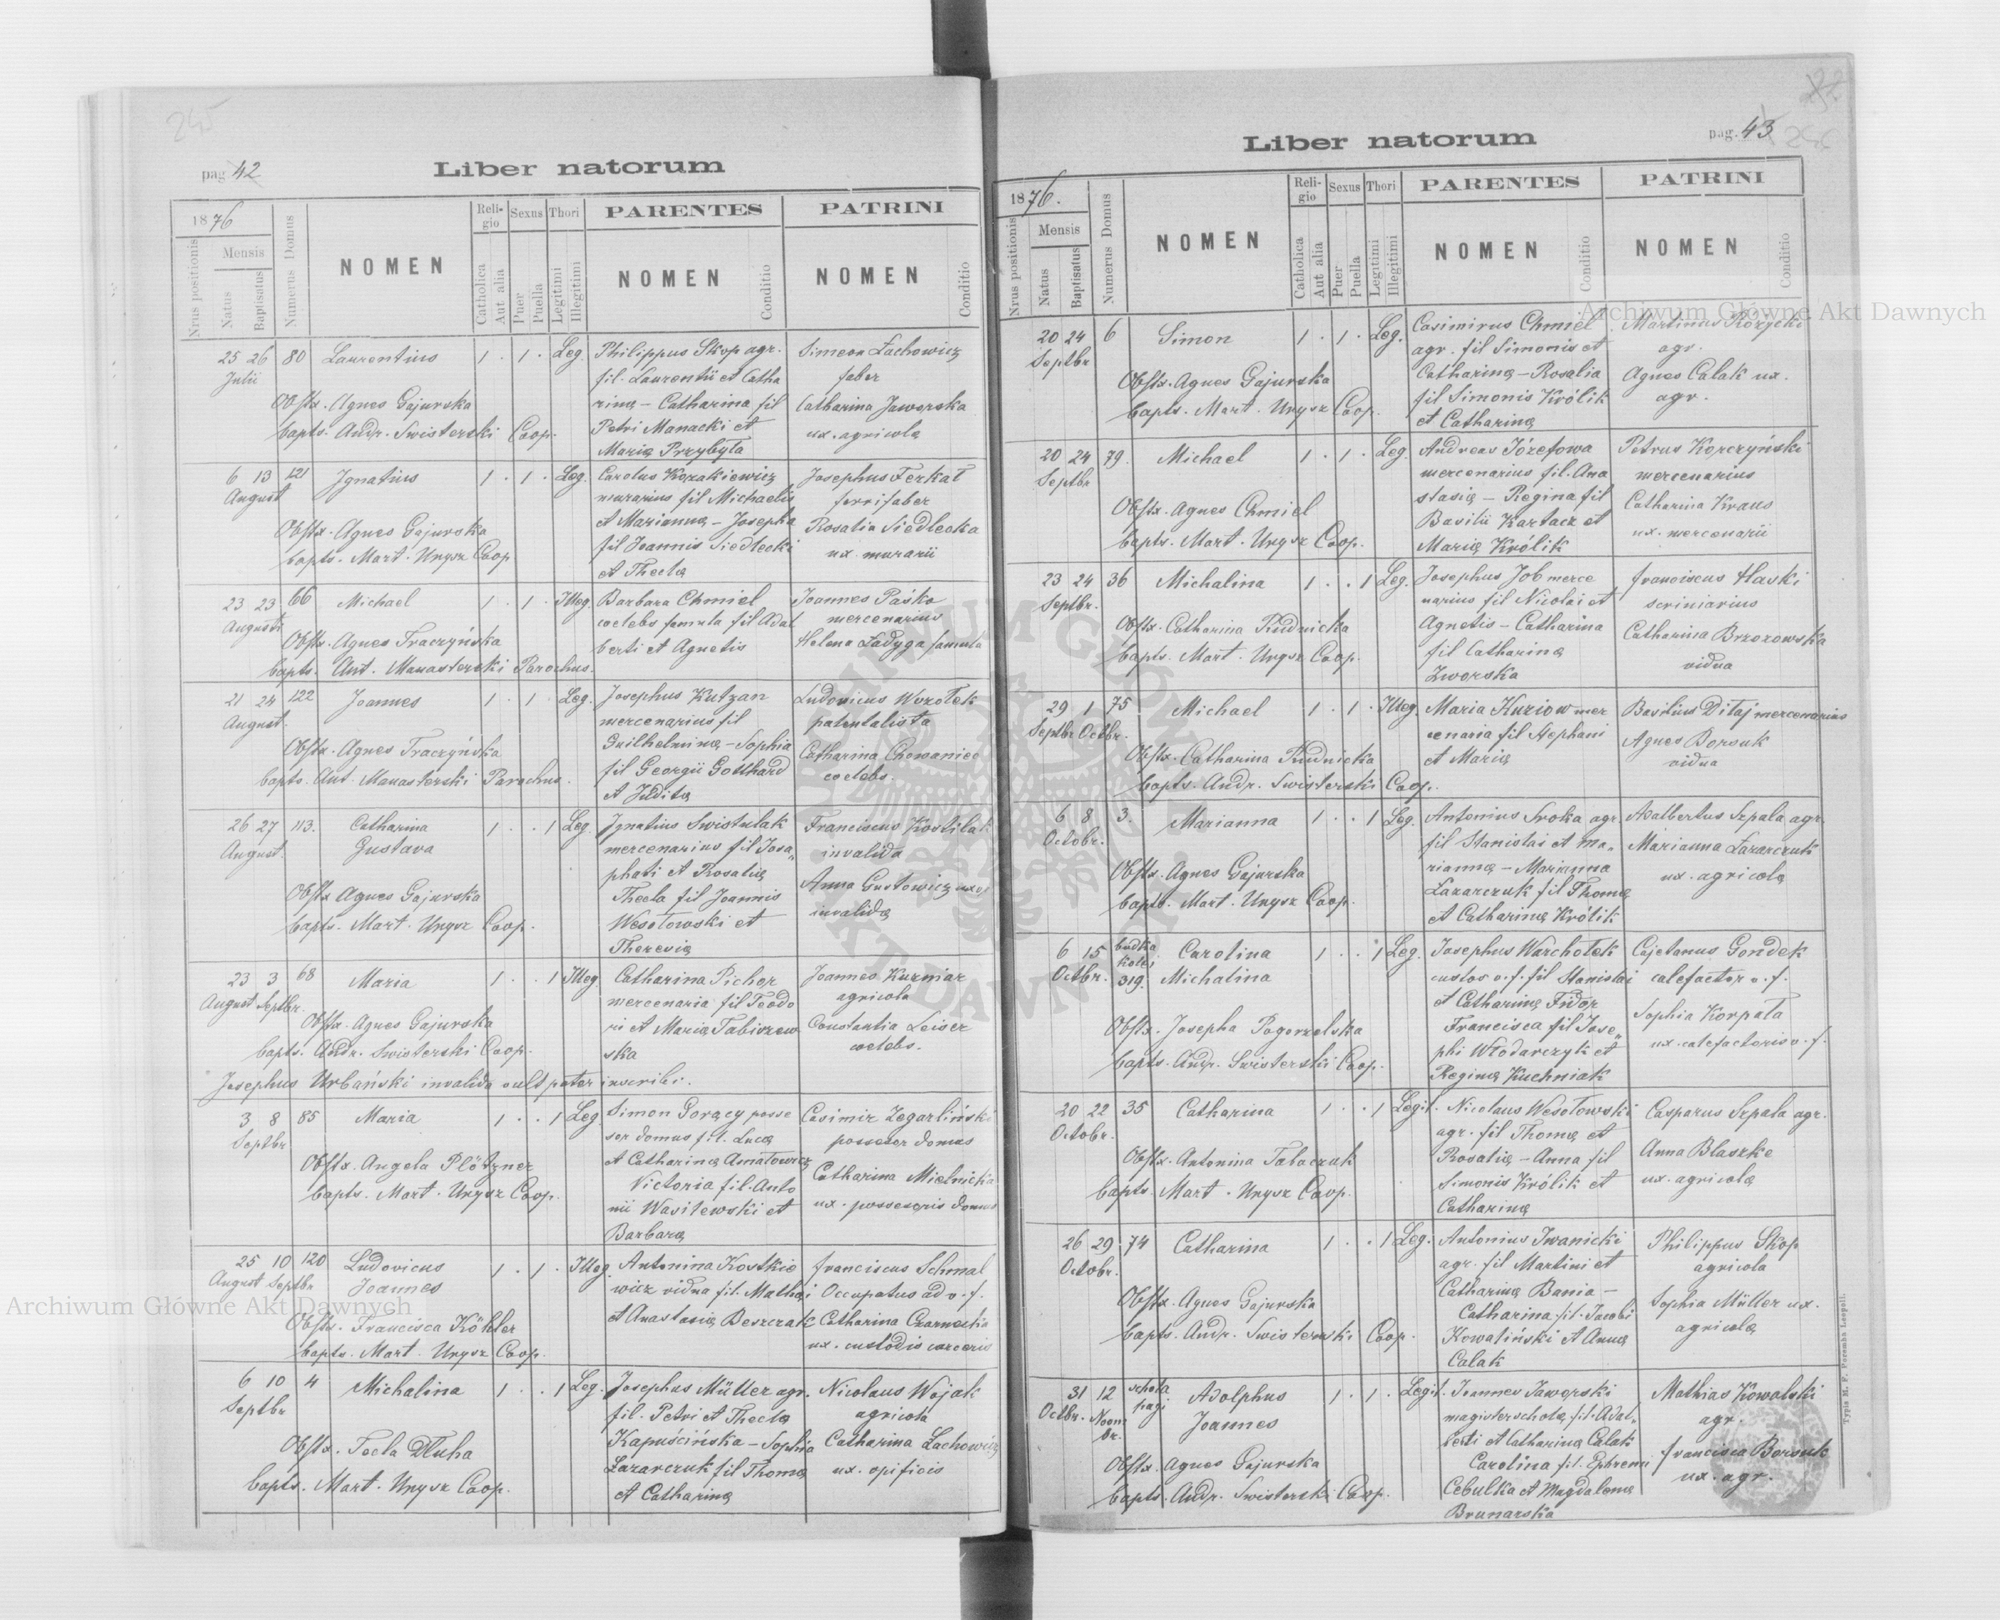 245
pag 42
Liber natorum
1876
Nrus positionis
Mensis
Natus
Baptisatus
Numerus Domus
NOMEN
Religio
Catholica
Aut alia
Sexus
Puer
Puella
Thori
Legitimi
Illegitimi
PARENTES
NOMEN
Conditio
PATRINI
NOMEN
Conditio
25 26 80 Laurentius 1 · 1 · Leg Philippus Skop agr. Simeon Lachowicz
Julii fil. Laurentii et Catha faber
Obstx. Agnes Gajurska rinę – Catharina fil Catharina Jaworska
bapts. Andr. Swisterski Coop. Petri Manacki et ux. agricolę
Marię Przybyła
6 13 121 Ignatius 1 · 1 · Leg. Carolus Kozakiewicz Josephus Ferkat
August murarius fil Michaelis ferrifaber
Obstx. Agnes Gajurska et Mariannę – Josepha Rosalia Siedlecka
bapts. Mart. Unysz Coop fil Joannis Siedlecki ux. murarii
et Theclę
23 23 66 Michael 1 · 1 · Illeg Barbara Chmiel Joannes Paśko
Augusti coelebs famula fil Adal mercenarius
Obstx. Agnes Traczyńska berti et Agnetis Helena Ladyga famula
bapts. Ant. Manasterski Parochus.
21 24 122 Joannes 1 · 1 · Leg. Josephus Kutzan Ludovicus Worotek
August. mercenarius fil patentalista
Obstx. Agnes Traczyńska Guilhelminę – Sophia Catharina Chowaniec
bapts. Ant. Manasterski Parochus. fil Georgii Gotthard coelebs.
et Juditę
26 27 113. Catharina 1 · · 1 Leg. Ignatius Swistulak Franciscus Kostilak
August. Gustava mercenarius fil Josa„ invalida
phati et Rosalię
Obstx Agnes Gajurska Thecla fil Joannis Anna Gustowicz uxor
bapts. Mart. Unysz Coop. Wesołowski et invalidę
Theresię
23 3 68 Maria 1 · · 1 Illeg Catharina Picher Joannes Kuzniar
August Septbr. mercenaria fil Teodo agricola
Obstx. Agnes Gajurska ri et Marię Tabiszew Constantia Leiser
bapts. Andr. Swisterski Coop. ska coelebs.
Josephus Urbański invalida vult pater inscribi.
3 8 85 Maria 1 · · 1 Leg Simon Gorący posse Casimir Zegarliński
Septbr sor domus fil. Lucę possesor domus
Obstx. Angela Plötzner et Catharinę Amatowicz Catharina Mielnicka
bapts. Mart. Unysz Coop. Victoria fil. Anto ux. possesoris domus
nii Wasilewski et
Barbarę
25 10 120 Ludovicus 1 · 1 · Illeg. Antonina Kostkie franciscus Schmal
August Septbr Joannes wicz vidua fil. Mathai Occupatus ad v. f.
Obstx. Francisca Köhler et Anastasię Beszczak Catharina Czarnecka
bapts. Mart. Unysz Coop. ux. custodis carceris
6 10 4 Michalina 1 · · 1 Leg. Josephus Müller agr. Nicolaus Wojak
Septbr fil. Petri et Theclę agricola
Obstx. Tecla Dłuha Kapuścińska – Sophia Catharina Lachowicz
bapts. Mart. Unysz Coop. Lazarczuk fil Thomę ux. opificis
et Catharinę
pag. 43
246
Liber natorum
1876.
Nrus positionis
Mensis
Natus
Baptisatus
Numerus Domus
NOMEN
Religio
Catholica
Aut alia
Sexus
Puer
Puella
Thori
Legitimi
Illegitimi
PARENTES
NOMEN
Conditio
PATRINI
NOMEN
Conditio
20 24 6 Simon 1 · 1 · Leg. Casimirus Chmiel Martinus Rozycki
Septbr agr. fil Simonis et agr.
Obstx. Agnes Gajurska Catharinę – Rosalia Agnes Calak ux.
bapts. Mart. Unysz Coop. fil Simonis Królik agr.
et Catharinę
20 24 79. Michael 1 · 1 · Leg. Andreas Józefowa Petrus Korczyński
Septbr mercenarius fil. Ana mercenarius
Obstx. Agnes Chmiel stasię – Regina fil Catharina Kraus
bapts. Mart. Unysz Coop. Basilii Kartacz et ux. mercenarii
Marię Królik
23 24 36 Michalina 1 · · 1 Leg. Josephus Job merce franciscus Haski
Septbr. narius fil Nicolai et scriniarius
Obstx. Catharina Rudnicka Agnetis – Catharina Catharina Brzozowska
bapts. Mart. Unysz Coop. fil Catharinę vidua
Zworska
29 1 75 Michael 1 · 1 · Illeg. Maria Kuziow mer Basilius Ditaj mercenarius
Septbr Octbr. cenaria fil Stephani Agnes Borsuk
Obstx. Catharina Rudnicka et Marię vidua
bapts. Andr. Swisterski Coop.
6 8 3. Marianna 1 · · 1 Leg. Antonius Sroka agr. Adalbertus Szpala agr.
Octobr. fil Stanislai et Ma„ Marianna Lazarczuk
Obstx. Agnes Gajurska riannę – Marianna ux. agricolę
bapts. Mart. Unysz Coop. Lazarczuk fil Thomę
et Catharinę Królik
6 15 budka kolei 319. Carolina 1 · · 1 Leg. Josephus Warchołek Cajetanus Gondek
Octbr. Michalina custos v. f. fil Stanislai calefactor v. f.
et Catharinę Fidor Sophia Korpata
Obstx. Josepha Pogorzelska Francisca fil Jose„ ux. calefactoris v. f.
bapts. Andr. Swisterski Coop. phi Włodarczyk et
Reginę Kuchniak
20 22 35 Catharina 1 · · 1 Legit. Nicolaus Wesołowski Casparus Szpala agr.
Octobr. agr. fil Thomę et Anna Blaszke
Obstx. Antonina Tabaczuk Rosalię – Anna fil ux. agricolę
bapts. Mart. Unysz Coop. Simonis Królik et
Catharinę
26 29 74 Catharina 1 · · 1 Leg. Antonius Iwanicki Philippus Skop
Octobr. agr. fil Martini et agricola
Obstx. Agnes Gajurska Catharinę Bania – Sophia Müller ux.
bapts. Andr. Swisterski Coop. Catharina fil. Jacobi agricolę
Kowaliński et Annę
Calak
31 12 schola pagi Adolphus 1 · 1 · Legit. Joannes Jaworski Mathias Kowalski
Octbr. Novmbr. Joannes magister scholę fil. Adal„ agr.
Obstx. Agnes Gajurska berti et Catharinę Calak francisca Borsuk
bapts. Andr. Swisterski Coop. Carolina fil. Ephremi ux. agr.
Cebulka et Magdalenę
Brunarska
Typis H. F. Poremba Leopoli.
Archiwum Główne Akt Dawnych
Archiwum Główne Akt Dawnych
ARCHIWUM GŁÓWNE AKT DAWNYCH